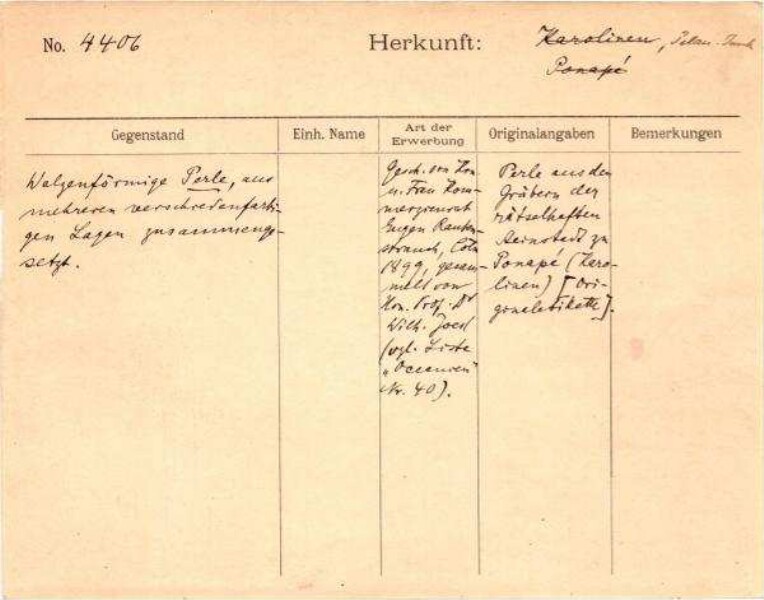 No. 4406 Herkunft: Karolinen, Palau-
Ponapé
Gegenstand Einh. Name Art der Erwerbung Originalangaben Bemerkungen
Walzenförmige Perle, aus
mehreren verschiedenfarbi-
gen Lagen zusammenge-
setzt.
Gesch. von Hrn
u. Frau Kom-
merzienrat
Eugen Rauten-
strauch, Cöln
1899, gesam-
melt von
Hon. Prof. Dr
Wilh. Joest
(vgl. Liste
"Oceanien"
Nr. 40).
Perle aus den
Gräbern der
rätselhaften
Steinstadt zu
Ponapé (Karo-
linen) [Ori-
ginaletikette].